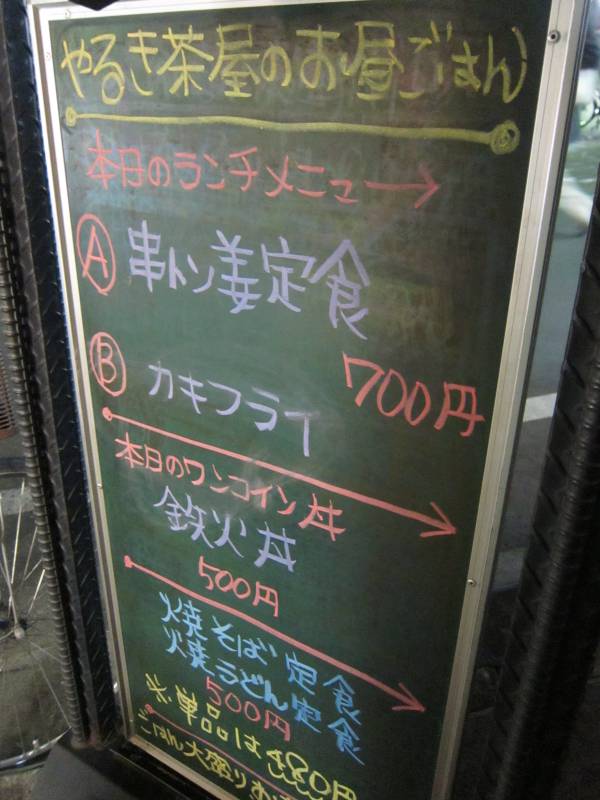 やるき茶屋のお昼ごはん
本日のランチメニュー→
Ⓐ 串トン姜定食
Ⓑ カキフライ
700円
本日のワンコイン丼
鉄火丼
500円
焼そば定食
焼うどん定食
500円
※単品は480円
ごはん大盛り